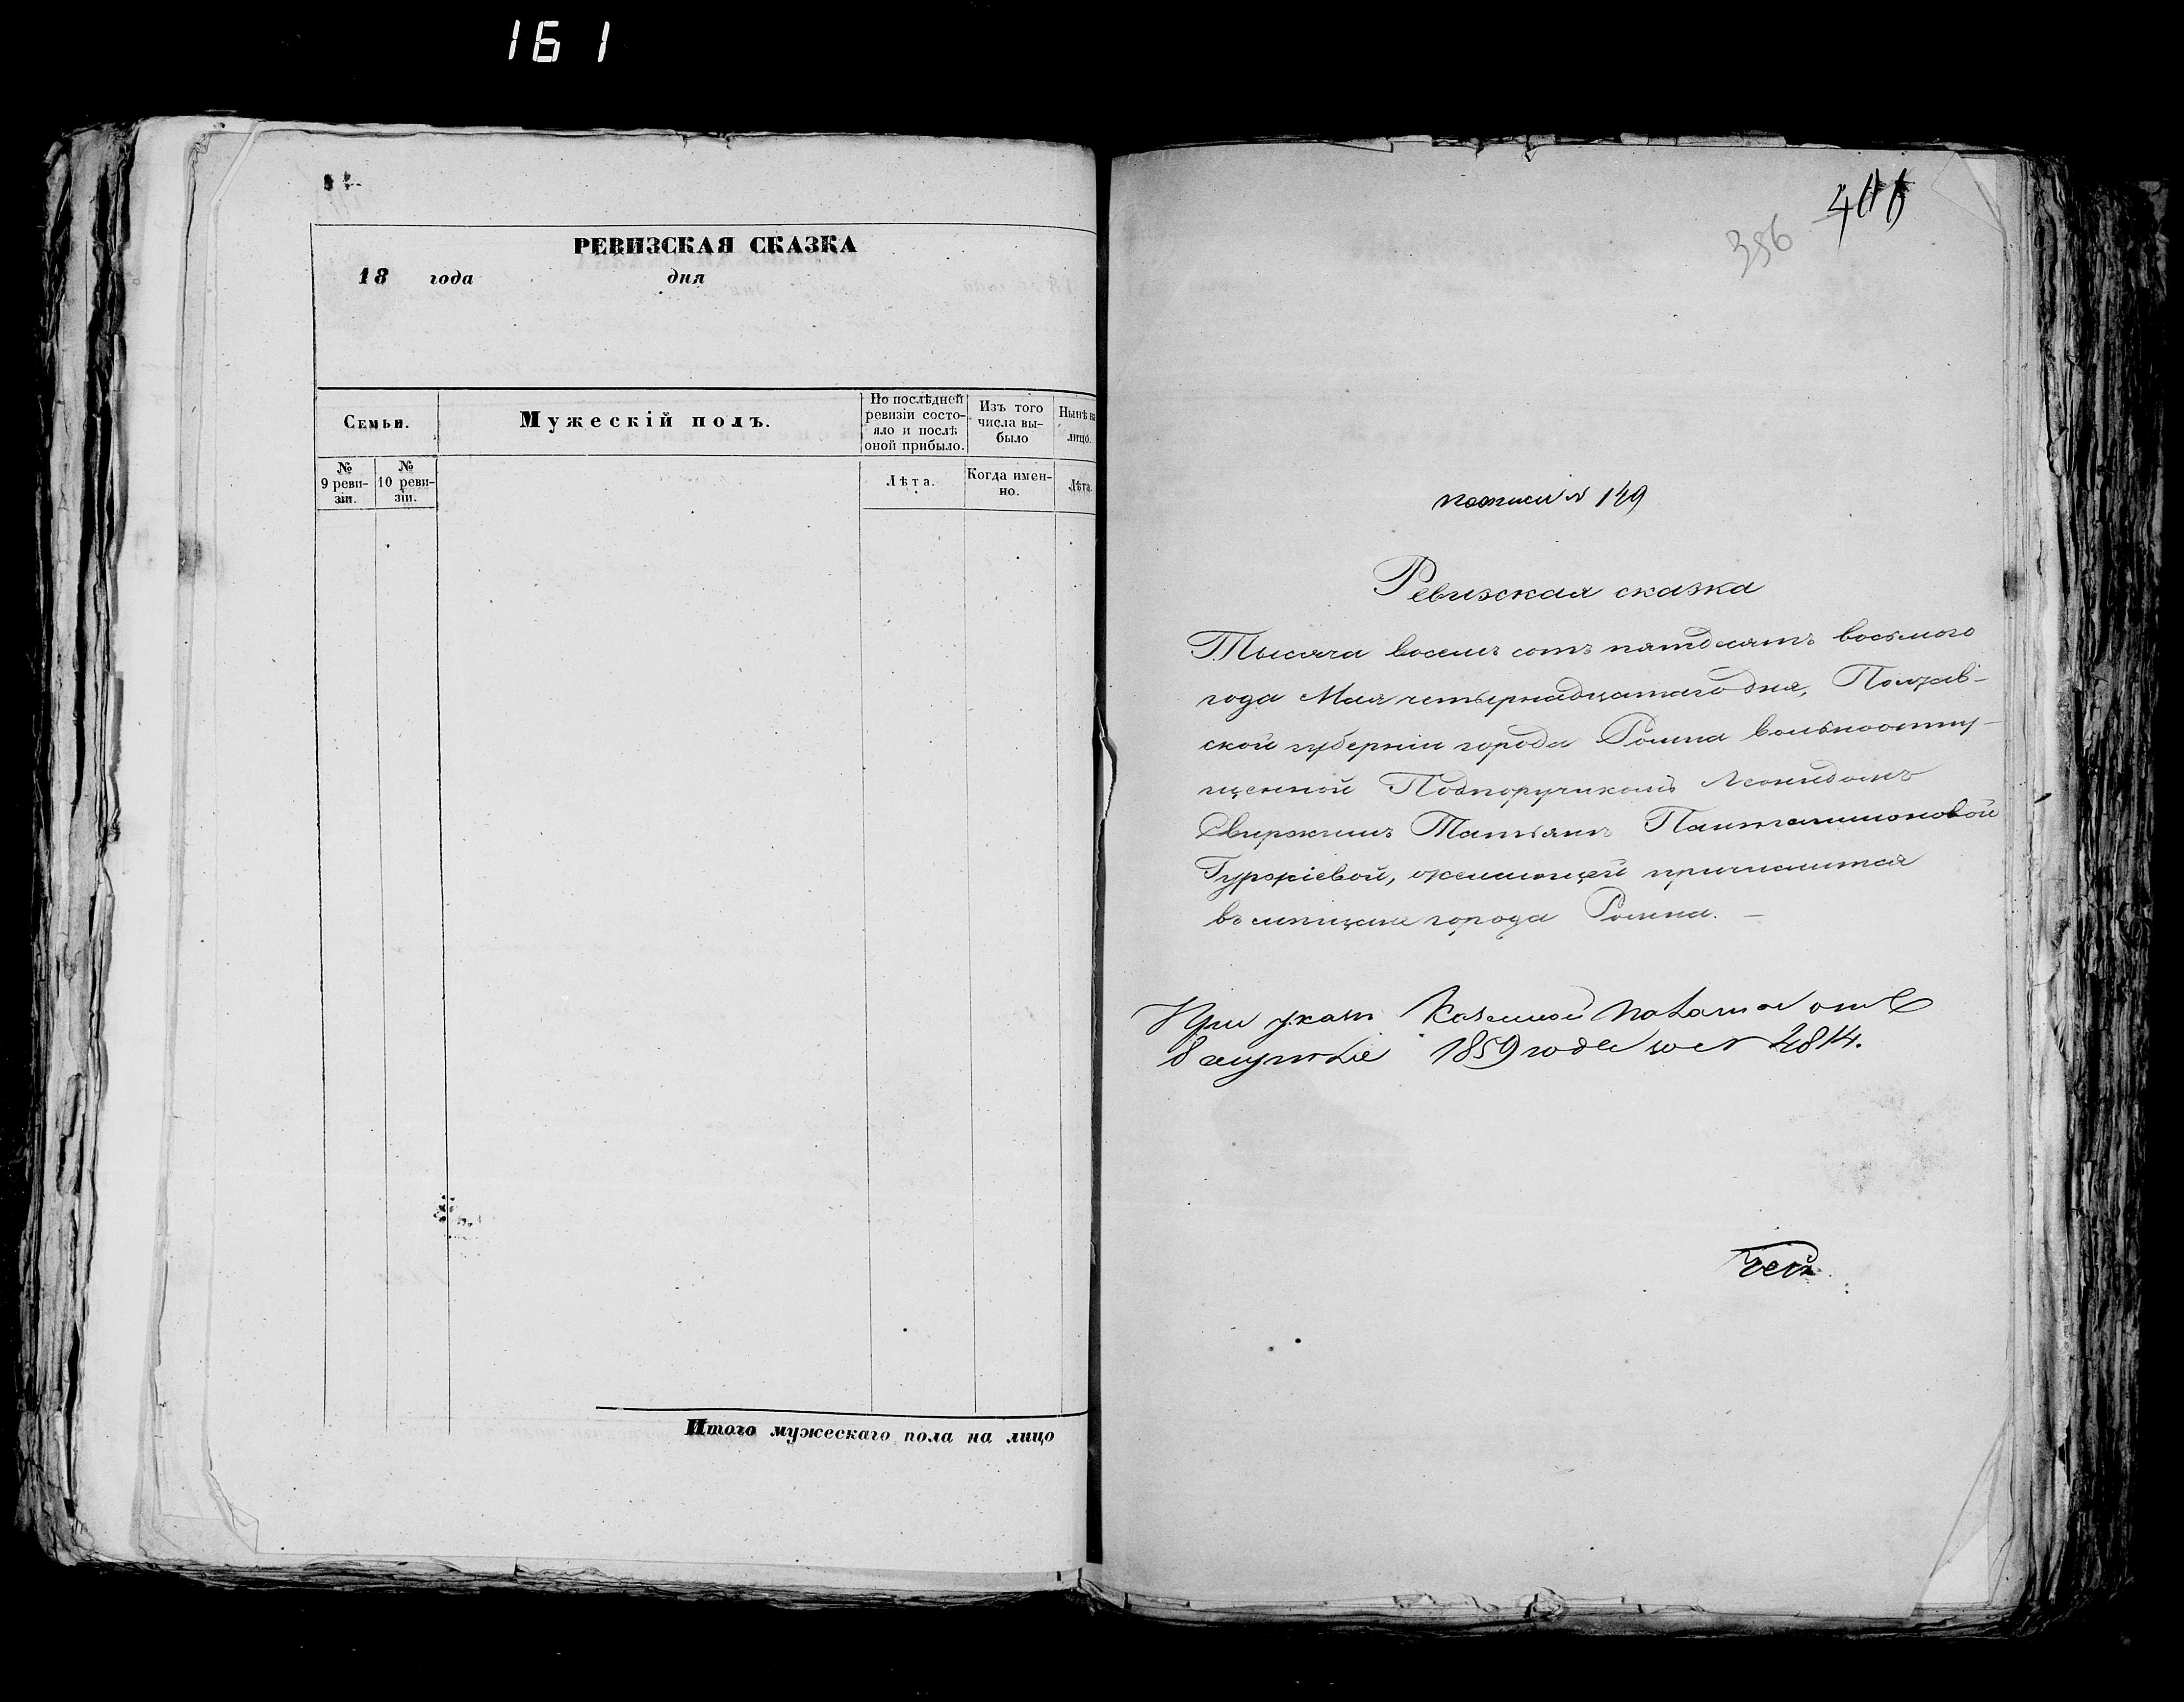 161
РЕВИЗСКАЯ СКАЗКА
18 года дня
Семьи.
Мужескій полъ.
По послѣдней ревизіи состояло и послѣ оной прибыло.
Изъ того числа выбыло
Нынѣ на лицо.
№ 9 ревизіи.
№ 10 ревизіи.
Лѣта.
Когда именно.
Лѣта.
Итого мужескаго пола на лицо
356
№ 149
Ревизская сказка
Тысяча восемь сотъ пятдесятъ восьмого
года Мая четырнадцатаго дня, Полтав-
ской губерніи города Ромна вольноотпу-
щенной Подпоручикомъ Леонидомъ
Татьяны Пантелимоновой
желающей причислится
въ мѣщане города Ромна. —
При указѣ Казенной Палаты отъ
8 1859 года за № 2814.